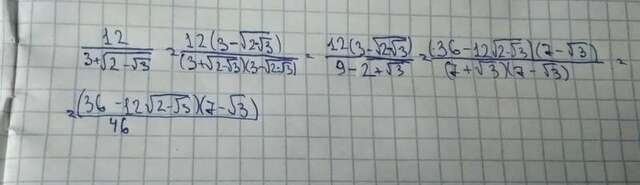 12/(3+√2-√3) = 12(3-√(2-√3))/((3+√(2-√3))(3-√(2-√3))) = 12(3-√(2-√3))/(9-2+√3) = (36-12√(2-√3))(7-√3)/((7+√3)(7-√3)) =
= (36-12√(2-√3))(7-√3)/46